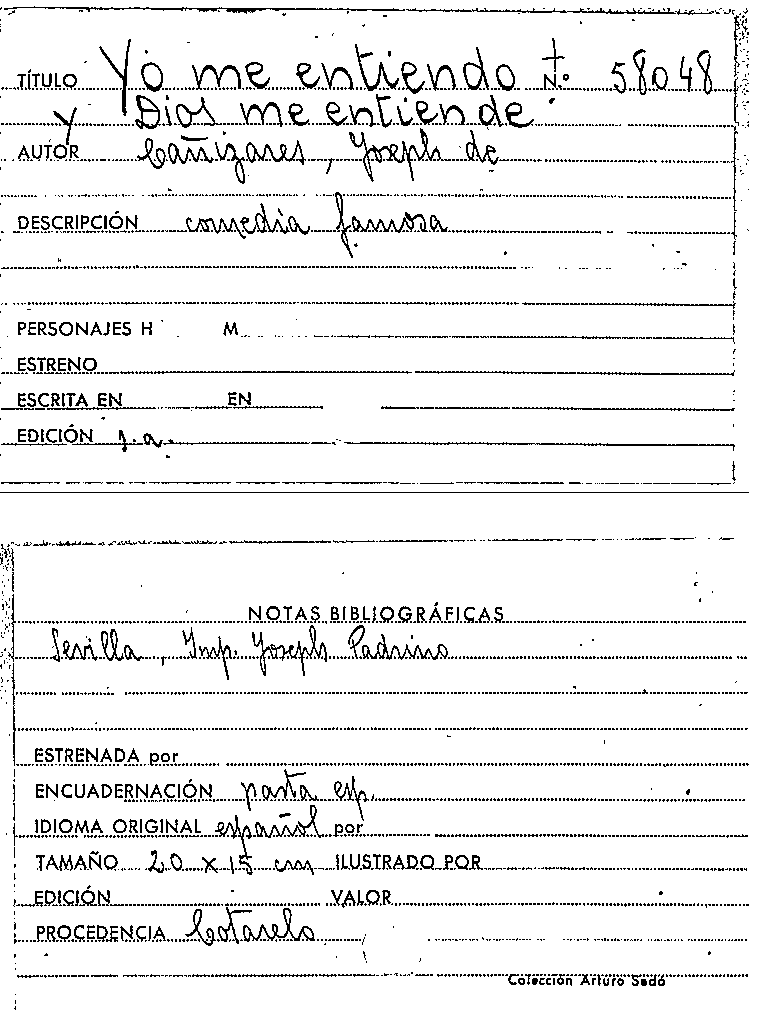 TÍTULO Yo me entiendo N.° 58048
y Dios me entiende
AUTOR Cañizares, Joseph de
DESCRIPCIÓN comedia famosa
PERSONAJES H M
ESTRENO
ESCRITA EN EN
EDICIÓN s.a.
NOTAS BIBLIOGRÁFICAS
Sevilla, Imp. Joseph Padrino
ESTRENADA por
ENCUADERNACIÓN pasta esp.
IDIOMA ORIGINAL español por
TAMAÑO 20 x 15 cm ILUSTRADO POR
EDICIÓN VALOR
PROCEDENCIA Cotarelo
Colección Arturo Sedó